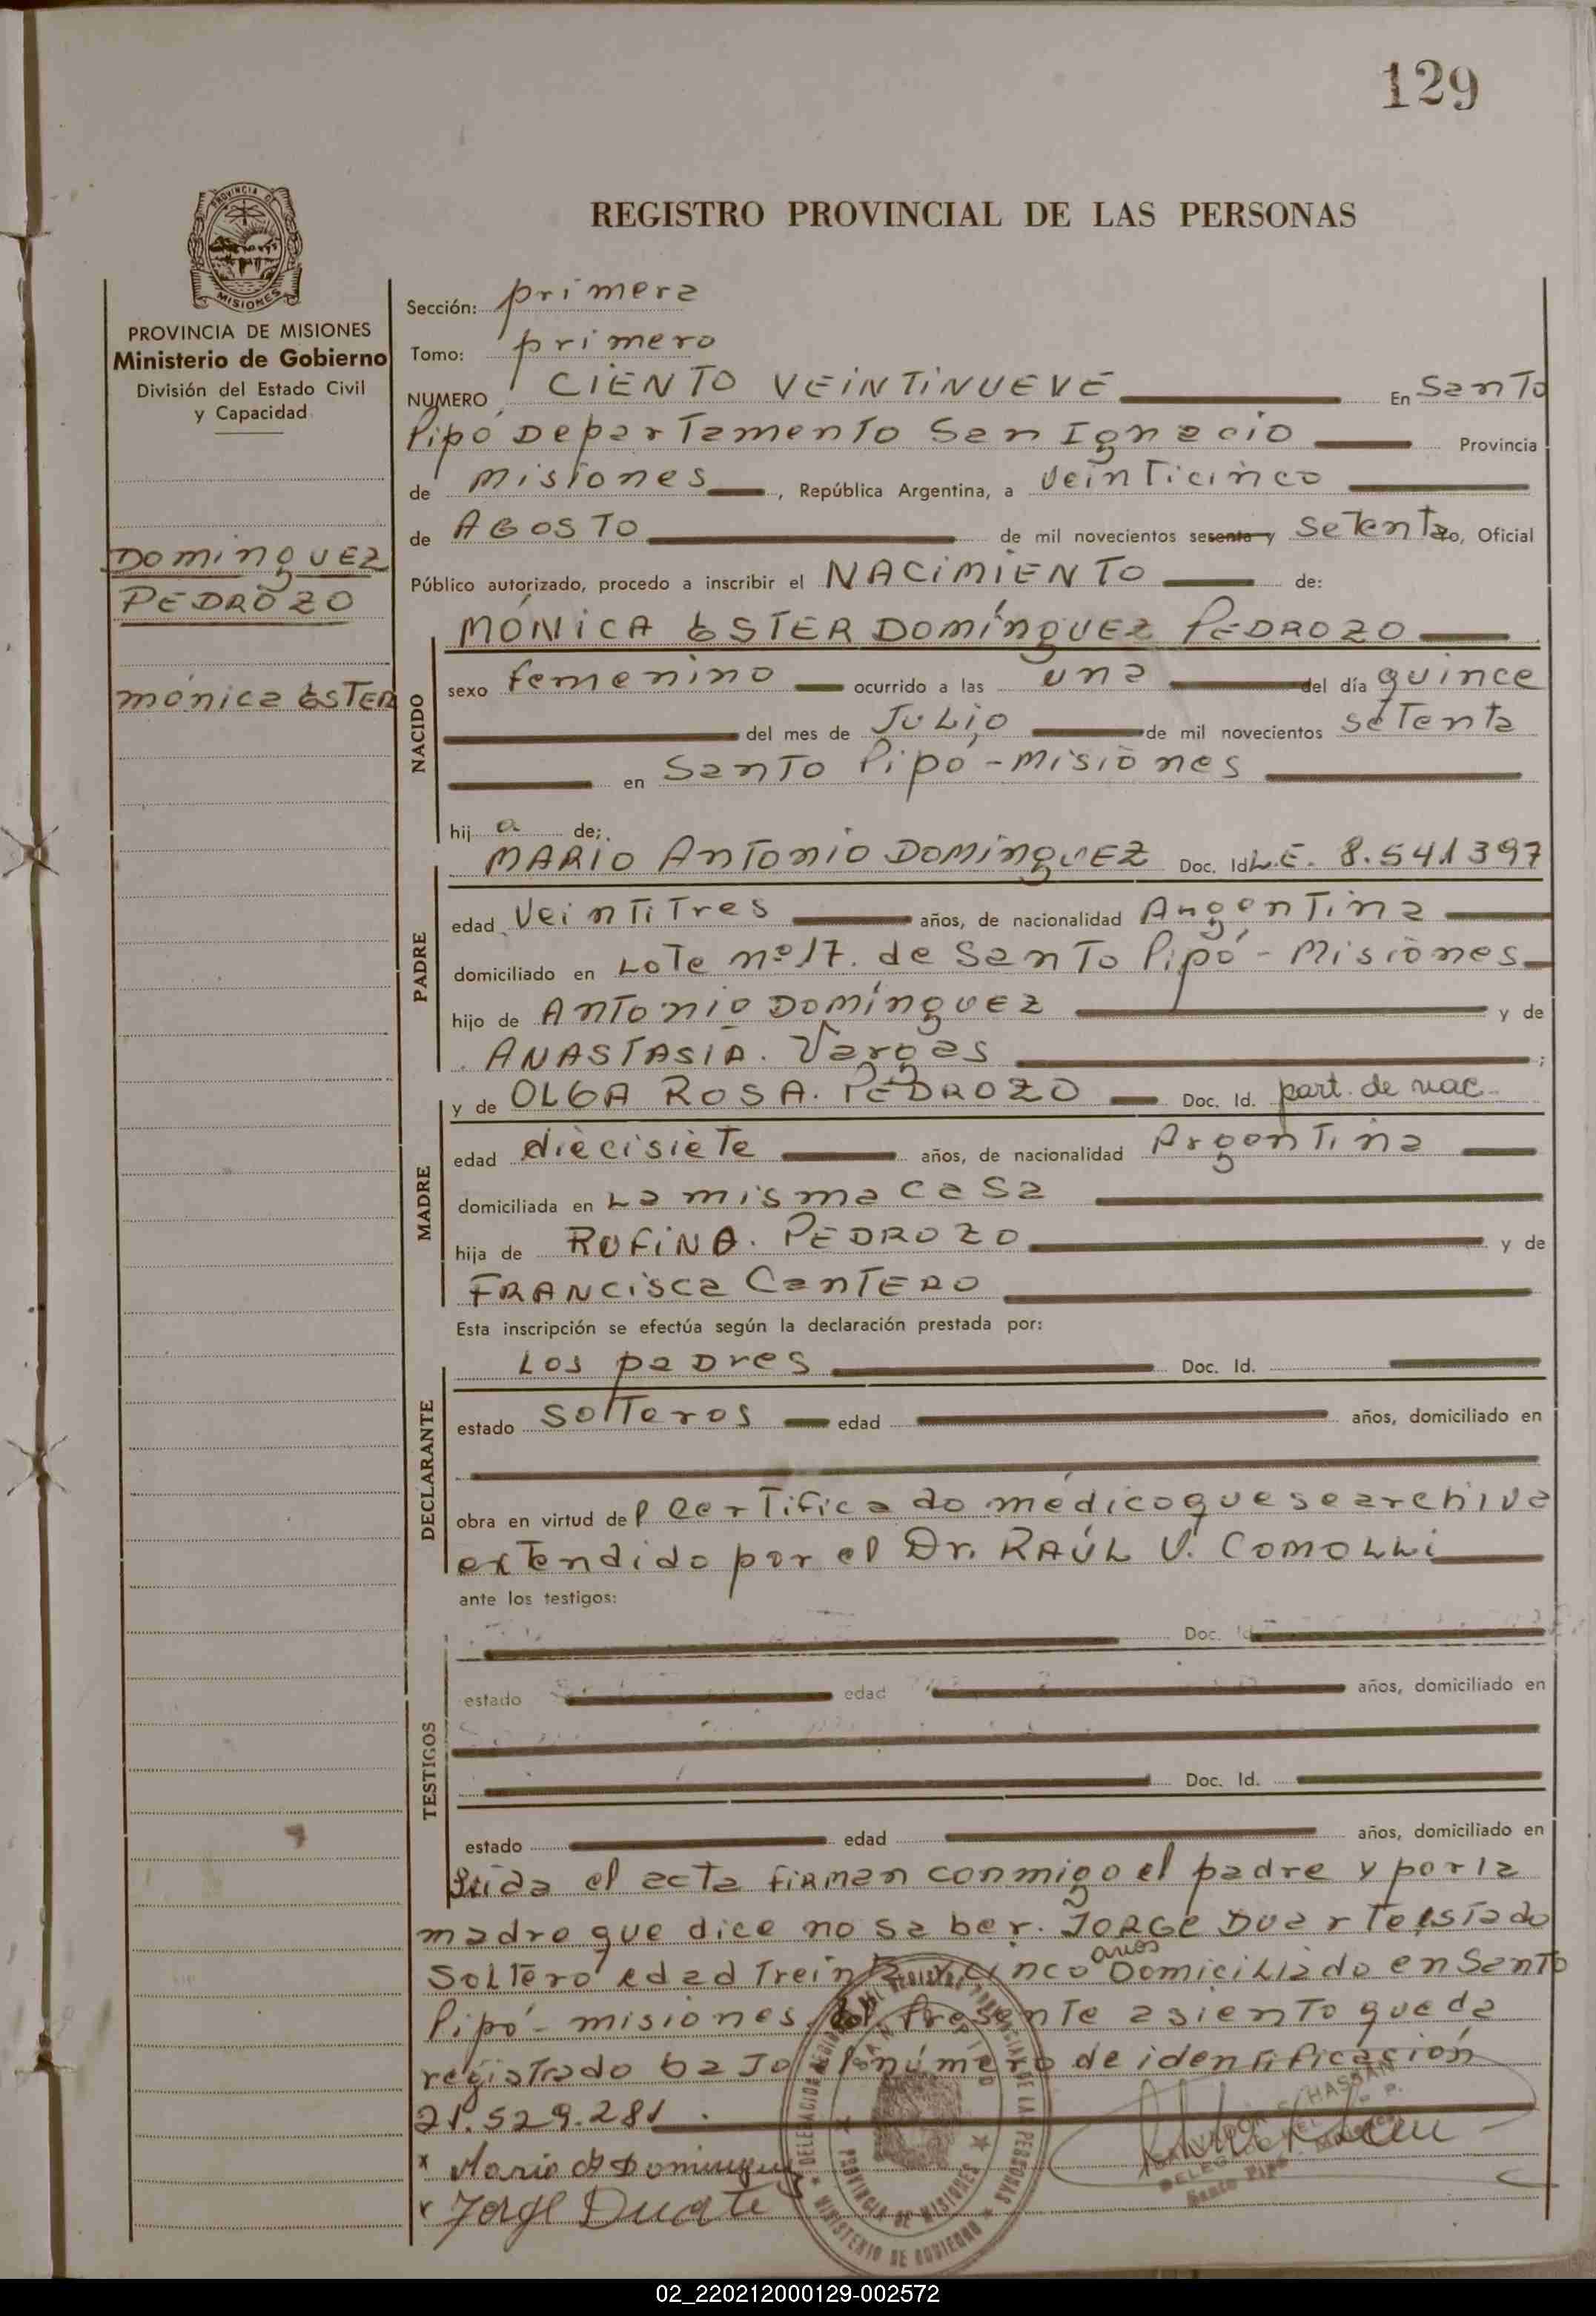 129
REGISTRO PROVINCIAL DE LAS PERSONAS
PROVINCIA DE MISIONES
Ministerio de Gobierno
División del Estado Civil
y Capacidad
DOMINGUEZ
PEDROZO
Mónica ESTER
Sección: primera
Tomo: primero
NUMERO CIENTO VEINTINUEVE En Santo
Pipó Departamento San Ignacio Provincia
de Misiones, República Argentina, a Veinticinco
de AGOSTO de mil novecientos sesenta y Setenta yo, Oficial
Público autorizado, procedo a inscribir el NACIMIENTO de:
NACIDO
MÓNICA ESTER DOMÍNGUEZ PEDROZO
sexo femenino ocurrido a las una del día quince
del mes de Julio de mil novecientos setenta
en Santo Pipó - Misiones
hij a de;
PADRE
MARIO ANTONIO DOMÍNGUEZ Doc. Id L.E. 8.541397
edad Veintitres años, de nacionalidad Argentina
domiciliado en Lote nº 17. de Santo Pipó - Misiones
hijo de ANTONIO DOMÍNGUEZ y de
ANASTASIA. Vargas ;
MADRE
y de OLGA ROSA. PEDROZO Doc. Id. part. de nac.
edad diecisiete años, de nacionalidad Argentina
domiciliada en La misma casa
hija de RUFINA. PEDROZO y de
FRANCISCA CANTERO
Esta inscripción se efectúa según la declaración prestada por:
DECLARANTE
Los padres Doc. Id.
estado Solteros edad años, domiciliado en
obra en virtud del Certificado médico que se archiva
extendido por el Dr. RAÚL V. COMOLLI
ante los testigos:
TESTIGOS
Doc. Id
estado edad años, domiciliado en
Doc. Id.
estado edad años, domiciliado en
Leida el acta firman conmigo el padre y por la
madre que dice no saber. JORGE Duarte estado
Soltero edad treinta y cinco años Domiciliado en Santo
Pipó - misiones. El presente asiento queda
registrado bajo el número de identificación
21.529.281.
x Mario A Dominguez
x Jorge Duarte
DELEGACION REGISTRO PROVINCIAL DE LAS PERSONAS
SANTO PIPO
PROVINCIA DE MISIONES
MINISTERIO DE GOBIERNO
HASSAN
Santo Pipó
02_220212000129-002572